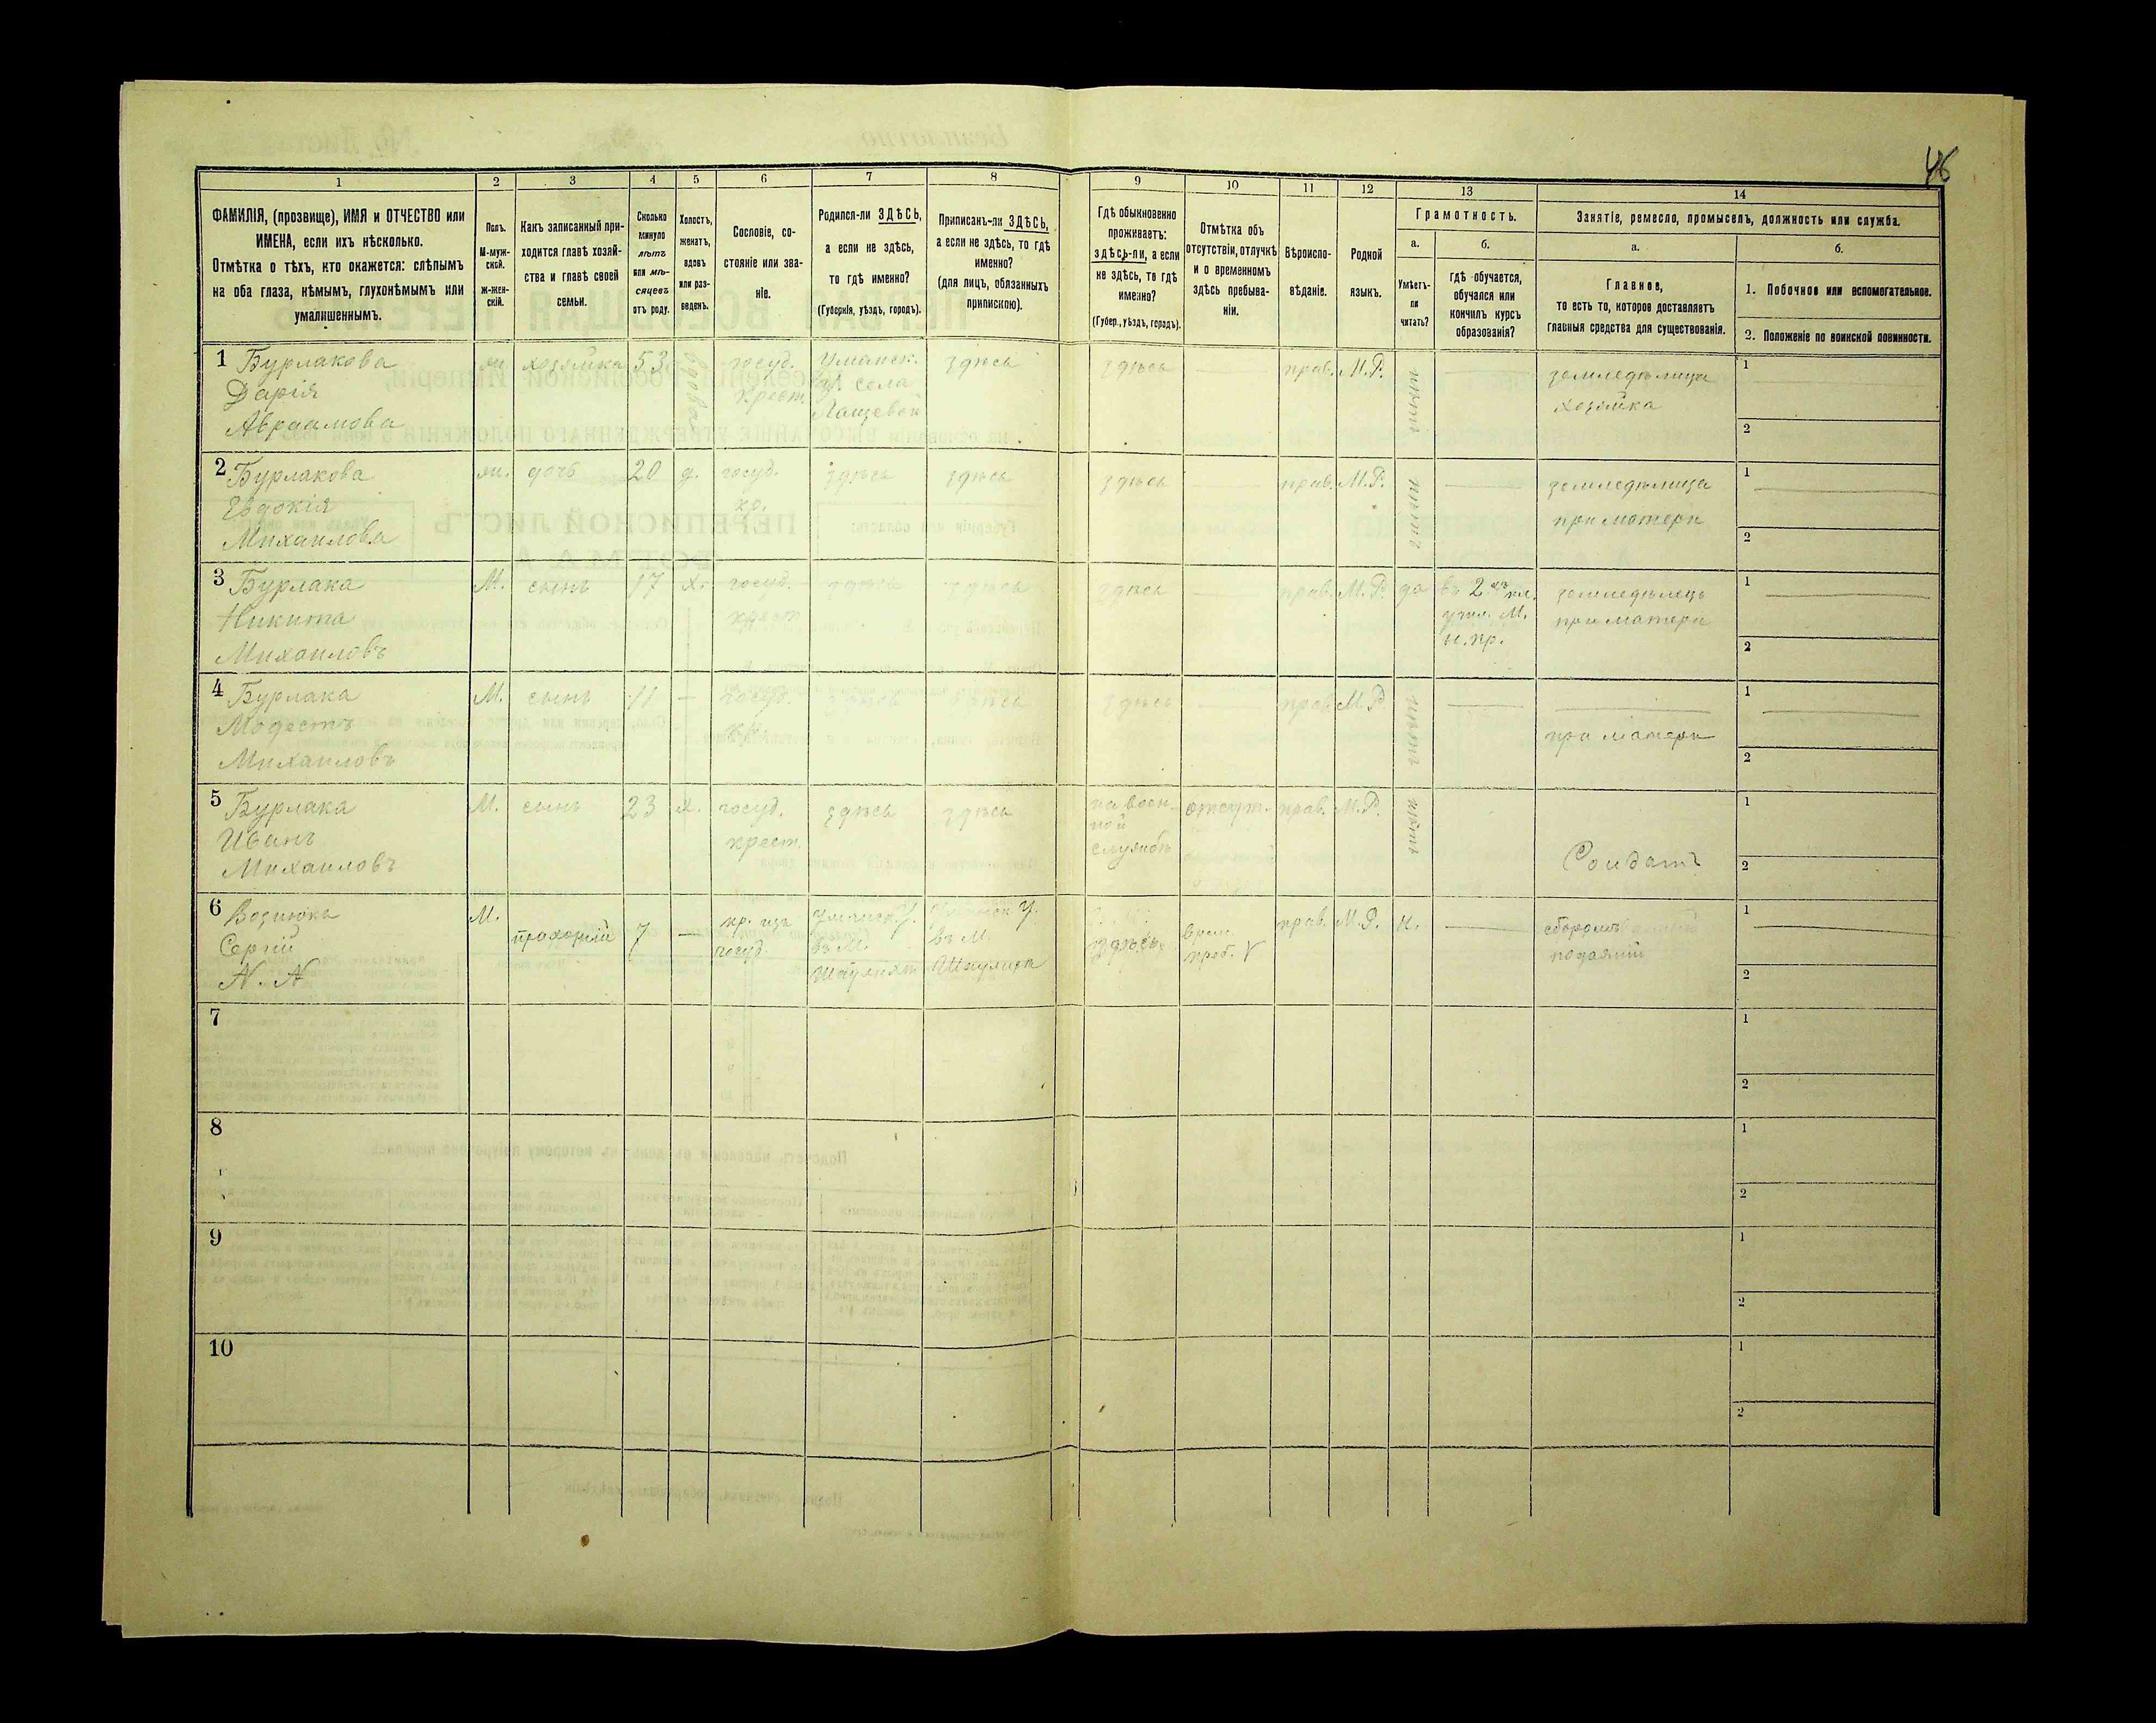 46
1 2 3 4 5 6 7 8 9 10 11 12 13 14
ФАМИЛІЯ, (прозвище), ИМЯ и ОТЧЕСТВО или
ИМЕНА, если ихъ нѣсколько.
Отмѣтка о тѣхъ, кто окажется: слѣпымъ
на оба глаза, нѣмымъ, глухонѣмымъ или
умалишеннымъ.
Полъ.
М-муж-
ской.
ж-жен-
скій.
Какъ записанный при-
ходится главѣ хозяй-
ства и главѣ своей
семьи.
Сколько
минуло
лѣтъ
или мѣ-
сяцевъ
отъ роду.
Холостъ,
женатъ,
вдовъ
или раз-
веденъ.
Сословіе, со-
стояніе или зва-
ніе.
Родился-ли ЗДѢСЬ,
а если не здѣсь,
то гдѣ именно?
(Губернія, уѣздъ, городъ).
Приписанъ-ли ЗДѢСЬ,
а если не здѣсь, то гдѣ
именно?
(для лицъ, обязанныхъ
припискою).
Гдѣ обыкновенно
проживаетъ:
здѣсь-ли, а если
не здѣсь, то гдѣ
именно?
(Губер., уѣздъ, городъ).
Отмѣтка объ
отсутствіи, отлучкѣ
и о временномъ
здѣсь пребыва-
ніи.
Вѣроиспо-
вѣданіе.
Родной
языкъ.
Грамотность.
а.
Умѣетъ-
ли
читать?
б.
гдѣ обучается,
обучался или
кончилъ курсъ
образованія?
Занятіе, ремесло, промыселъ, должность или служба.
а.
Главное,
то есть то, которое доставляетъ
главныя средства для существованія.
б.
1. Побочное или вспомогательное.
2. Положеніе по воинской повинности.
1 Бурлакова
Дарія
Авраамова
ж хозяйка 53 вдова
госуд.
крест
Уманск.
у. села
Лащевой
здѣсь
здѣсь
прав. М.Р.
нѣтъ
земледѣлица
хозяйка
1
2
2 Бурлакова
Евдокія
Михаилова
ж. дочь 20 д.
госуд.
кр.
здѣсь
здѣсь
здѣсь
прав. М.Р.
нѣтъ
земледѣлица
при матери
1
2
3 Бурлака
Никита
Михаиловъ
М. сынъ 17 х.
госуд.
крест
здѣсь
здѣсь
здѣсь
прав. М.Р. да
въ 2хъ кл.
учил. М.
н. пр.
земледѣлецъ
при матери
1
2
4 Бурлака
Модестъ
Михаиловъ
М. сынъ 11 —
госуд.
кр.
здѣсь
здѣсь
здѣсь
прав. М.Р
нѣтъ
при матери
1
2
5 Бурлака
Иванъ
Михаиловъ
М. сынъ 23 х.
госуд.
крест.
здѣсь
здѣсь
на воен-
ной
службѣ
отсут. прав. М.Р.
нѣтъ
Солдатъ
1
2
6
Сергій
N. N
М.
прохожій 7 —
кр. изъ
госуд.
Уманск. У.
въ М.
Уманск У.
въ М.
здѣсь
врем.
преб. V
прав. М.Р. н.
сборомъ
подаяній
1
2
7
1
2
8
1
2
9
1
2
10
1
2